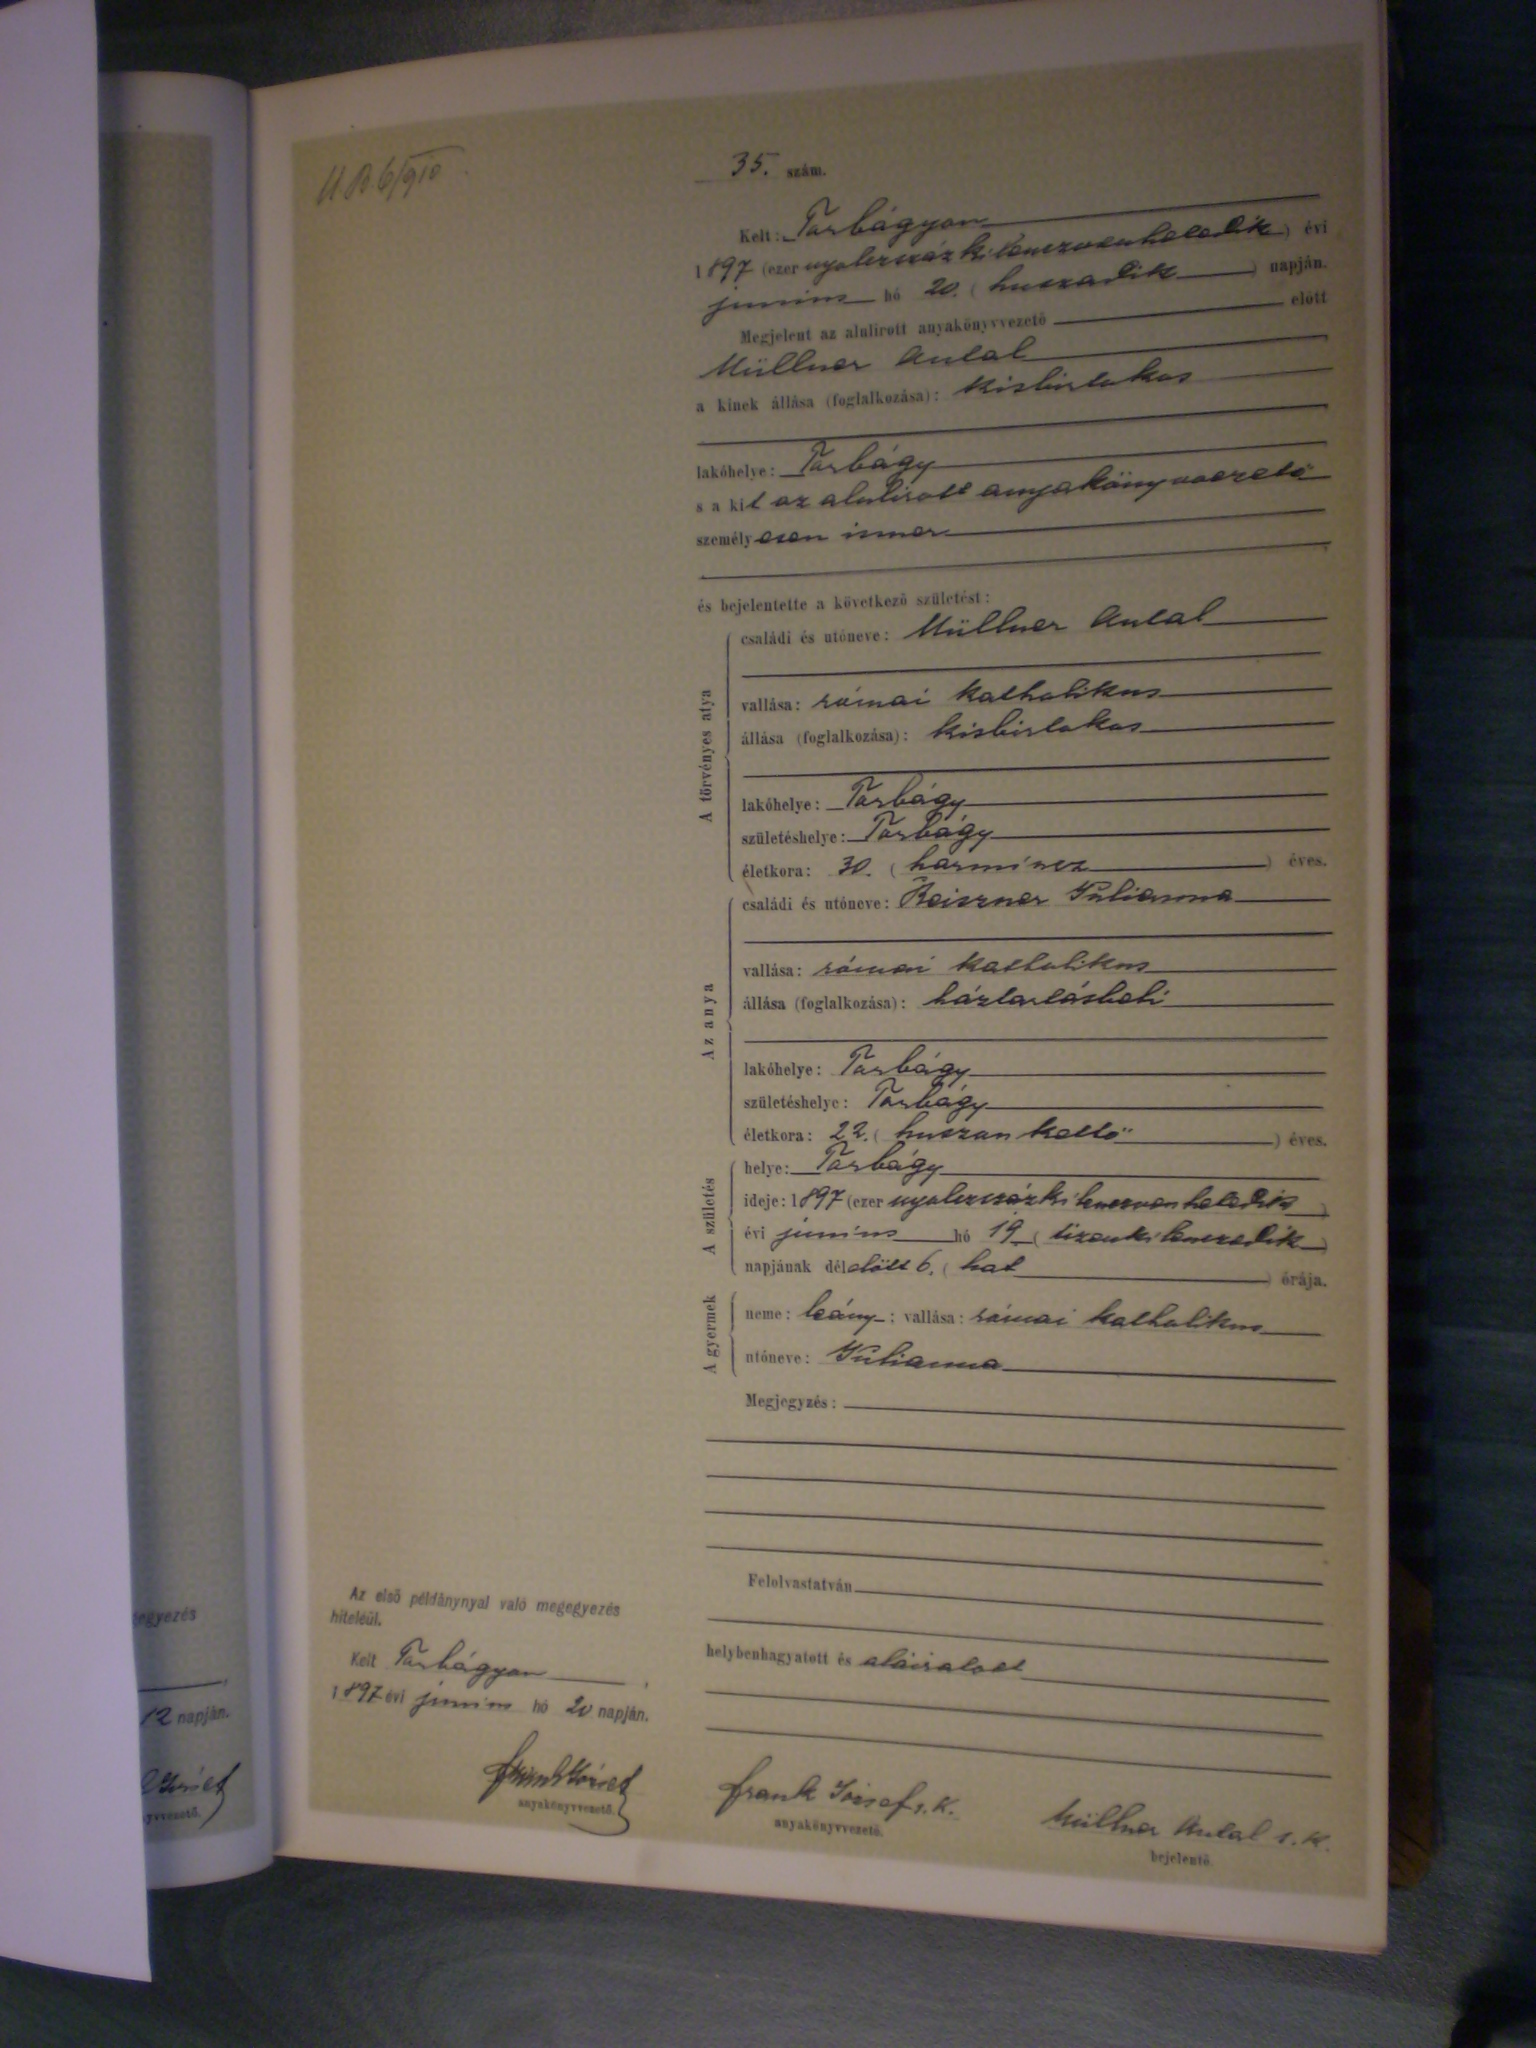 35. szám.
Kelt: Torbágyon
1897 (ezer nyolczszáz kilenczvenhetedik) évi
junius hó 20. (huszadik) napján.
Megjelent az alulírott anyakönyvvezető előtt
Müllner Antal
a kinek állása (foglalkozása): kisbirtokos
lakóhelye: Torbágy
s a kit az alulirott anyakönyvvezető
személyesen ismer
és bejelentette a következő születést:
A törvényes atya
családi és utóneve: Müllner Antal
vallása: római katholikus
állása (foglalkozása): kisbirtokos
lakóhelye: Torbágy
születéshelye: Torbágy
életkora: 30. (harmincz) éves.
Az anya
családi és utóneve: Reiszner Julianna
vallása: római katholikus
állása (foglalkozása): háztartásbeli
lakóhelye: Torbágy
születéshelye: Torbágy
életkora: 22. (huszonkettő) éves.
A születés
helye: Torbágy
ideje: 1897 (ezer nyolczszáz kilenczvenhetedik)
évi junius hó 19 (tizenkilenczedik)
napjának délelőtt 6. (hat) órája.
A gyermek
neme: leány; vallása: római katholikus
utóneve: Julianna
Megjegyzés:
Felolvastatván
helybenhagyatott és aláiratott
Az első példánynyal való megegyezés
hiteléül.
Kelt Torbágyon,
1897 évi junius hó 20 napján.
Frank József
anyakönyvvezető.
Frank József s. k.
anyakönyvvezető.
Müllner Antal s. k.
bejelentő.
12 napján.